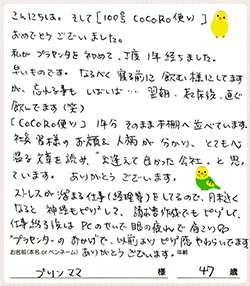 こんにちは。そして[100号 COCORO便り]
おめでとうございました。
私がプラセンタを初めて、丁度1年経ちました。
早いものです。なるべく寝る前に飲む様にしてますが
が、忘れる事もしばしば… 翌朝、起床後、直ぐ
飲んでます(笑)
[COCORO便り] 1年分そのまま本棚へ並べています。
社会皆様のお顔&人柄が分かり、とても心
温る文章を読み、"出逢えて良かった会社"と思っ
ています。ありがとうございます。
ストレスが溜まる仕事(経理等)をしてるので、月末近く
なると神経もピリピリして、請求書作成でもピリピリして、
仕事終る頃はPCのせいで眼の疲れで肩こり
"プラセンター"のおかげで、以前よりピリピリ感やわらいでます
お名前(本名orペンネーム) ありがとうございます。年齢
プリンママ 様 47歳